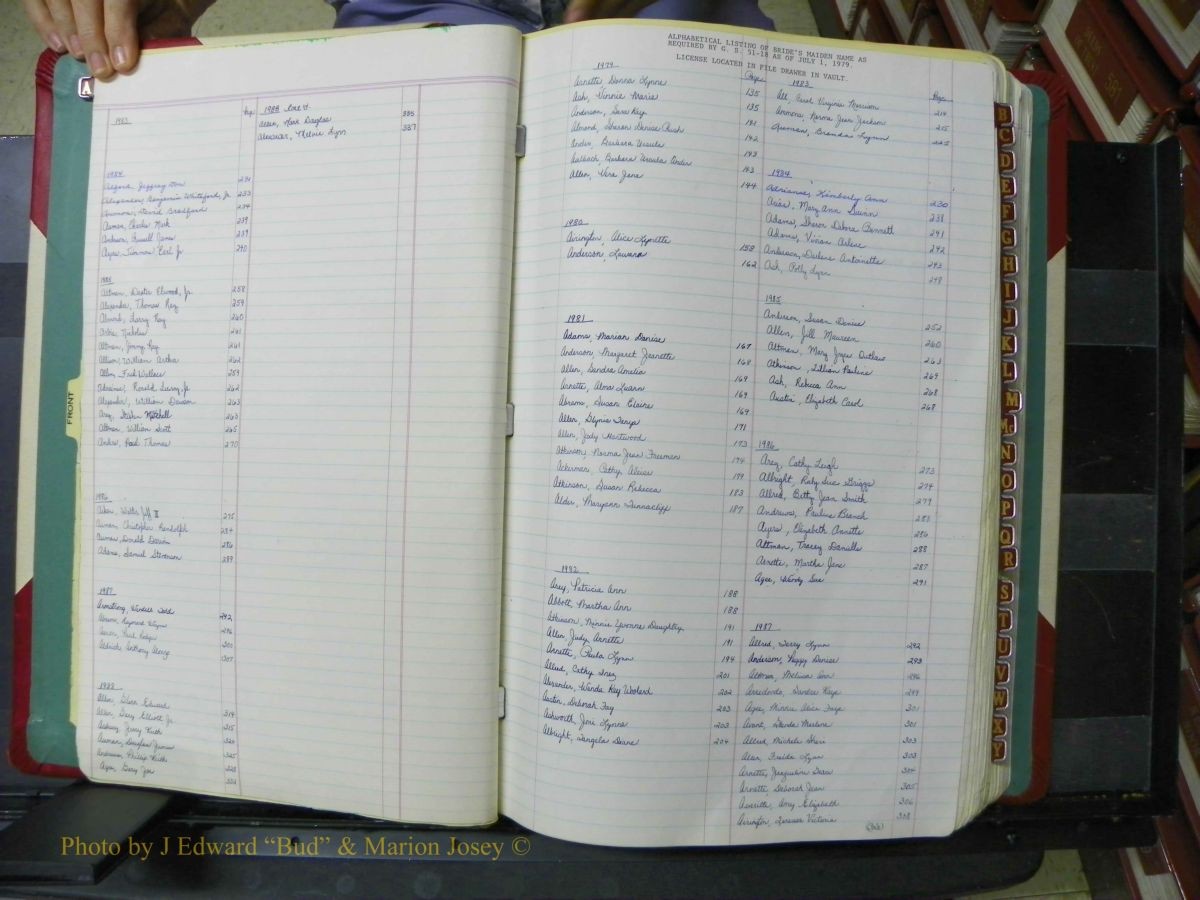 A
FRONT
1983
1984
Jeffrey
Benjamin Whiteford, Jr. 233
David Bradford 234
Charles Mark 239
Anderson, Russell James 239
Ayers, Simmons Earl Jr. 240
1985
Altman, Dexter Elwood, Jr. 258
Alexander, Thomas Ray 259
Almond, Larry Ray 260
Nicholas 261
Altman, Jimmy Ray 261
Allison, William Artha 262
Allen, Fred Wallace 259
Ronald Leroy, Jr. 262
Alexander, William Dawson 263
Mitchell 263
Altman, William Scott 265
Andre, Paul Thomas 270
1986
Walter Jeff II 275
Christopher Randolph 284
Donald Darwin 286
Adams, Samuel Stevenson 289
1987
Armstrong, Todd
Abrams, Raymond 292
Aaron, Paul 296
Aldrich, Anthony 300
307
1988
Allen, Glenn Edward
Allen, Gary Elliott Jr. 314
Jerry Keith 315
Douglas James 320
Anderson, Phillip Keith 325
Ayers, Gary Joe 328
332
Pg. 1988 Con't
Allen, Mark Douglas 335
Alexander, Melvin Lynn 337
ALPHABETICAL LISTING OF BRIDE'S MAIDEN NAME AS
REQUIRED BY G. S. 51-18 AS OF JULY 1, 1979.
LICENSE LOCATED IN FILE DRAWER IN VAULT.
1979 Page
Arnette, Donna Lynne 135
Ash, Vinnie Marie 135
Anderson, Sara Kay 141
Almond, Sharon Denise Rush 142
Ander, Barbara Ursula 143
Aalbach, Barbara Ursula Ander 143
Allen, Vera Jane 144
1980
Arrington, Alice Lynette 158
Anderson, Lauvana 162
1981
Adams, Marian Denise 167
Anderson, Margaret Jeanette 168
Allen, Sandra Amelia 169
Arnette, Alma Luann 169
Abrams, Susan Elaine 169
Allen, Glynis Tonya 171
Allen, Jody Hartwood 173
Atkinson, Norma Jean Freeman 174
Ackerman, Cathy Alexis 179
Atkinson, Susan Rebecca 183
Alder, Maryann 187
1982
Arey, Patricia Ann 188
Abbott, Martha Ann 188
Atkinson, Minnie Yvonne Daughtry 191
Allen, Judy Annette 191
Arnette, Paula Lynn 194
Allred, Cathy Inez 201
Alexander, Wanda Kay Woolard 202
Austin, Deborah Fay 203
Ashworth, Joni Lynne 203
Albright, Tangela Deane 204
1983 Page
Alt, Carol Virginia Morrison 214
Ammons, Norma Jean Jackson 215
Brenda Lynn 225
1984
Adrianse, Kimberly Ann 230
Arias, Mary Ann Quinn 238
Adams, Sharon Debora Bennett 241
Adams, Vivian Arlene 242
Anderson, Darlene Antoinette 243
Ash, Polly Lynn 248
1985
Anderson, Susan Denise 252
Allen, Jill Maureen 260
Altman, Mary Joyce Outlaw 263
Atkinson, Lillian Pauline 264
Ash, Rebecca Ann 268
Austin, Elizabeth Carol 268
1986
Arey, Cathy Leigh 273
Albright, Ruby Sue Griggs 274
Allred, Betty Jean Smith 279
Andrews, Pauline Branch 285
Ayers, Elizabeth Annette 286
Altman, Tracey Danielle 288
Arnette, Martha Jane 287
Agee, Wendy Sue 291
1987
Allred, Terry Lynn 292
Anderson, Peggy Denise 293
Altman, Melissa Ann 296
Arredondo, Sandra Kaye 299
Agee, Minnie Alice Faye 301
Avant, Glenda Marlene 301
Allred, Michele Sheri 303
Alan, Freida Lynn 303
Arnette, Jacqueline 304
Arnette, Deborah Jean 305
Averitte, Amy Elizabeth 306
Arrington, Teressa Victoria 308
B
C
D
E
F
G
H
I
J
K
L
M
Mc
N
O
P
Q
R
S
T
U
V
W
X
Y
Photo by J Edward “Bud” & Marion Josey ©